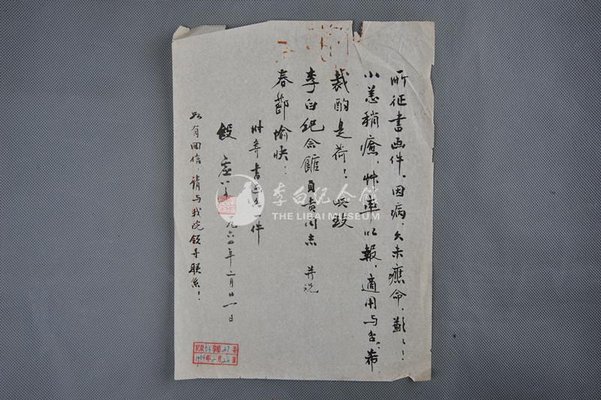 所征书画件，因病，久未应命，歉歉！
小恙稍疗，草率以报，适用与否，希
裁酌是荷！此致
李白纪念馆负责同志 并祝
春节愉快：
附寄书画一件
段虚谷
一九六四年二月廿一日
如有回信，请与我院领导联系！
李白纪念馆
THE LIBAI MUSEUM